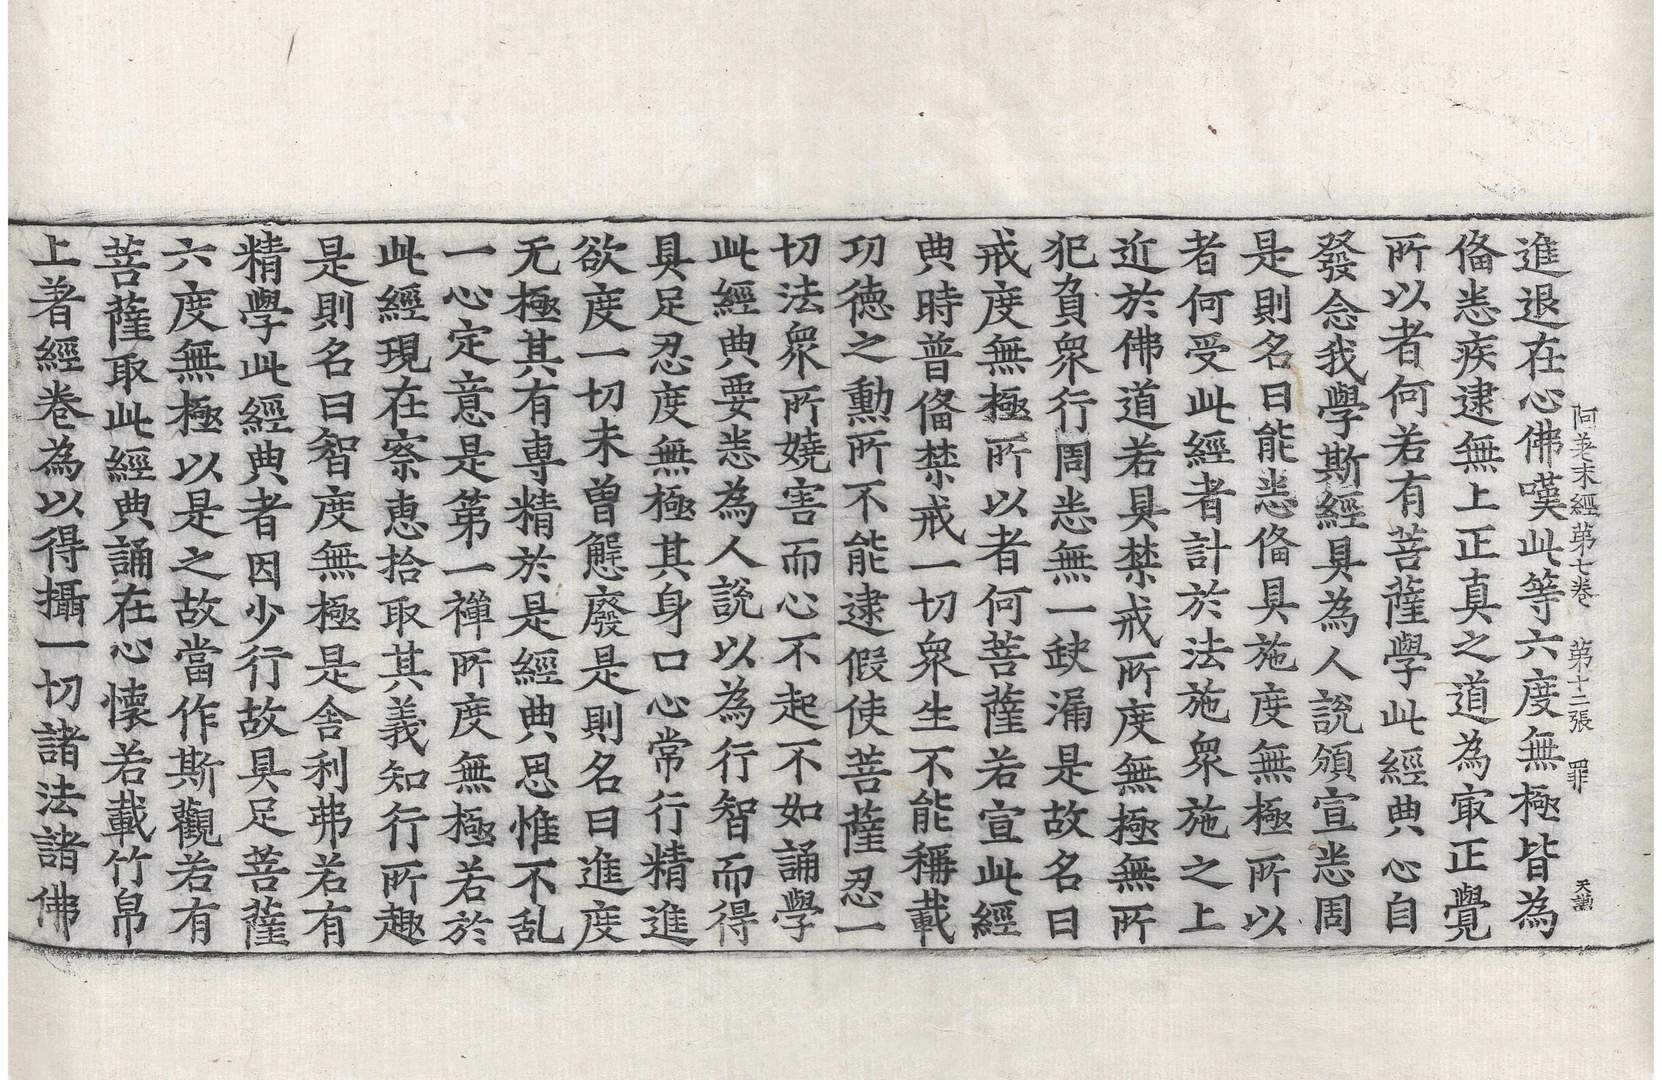 阿差末經第七卷 第十二張 罪 天𧫒
進退在心佛嘆此等六度無極皆為
俻悉疾逮無上正真之道為㝡正覺
所以者何若有菩薩學此經典心自
發念我學斯經具為人說頒宣悉周
是則名曰能悉俻具施度無極所以
者何受此經者計於法施衆施之上
近於佛道若具禁戒所度無極無所
犯負衆行周悉無一缺漏是故名曰
戒度無極所以者何菩薩若宣此經
典時普俻禁戒一切衆生不能稱載
功德之勳所不能逮假使菩薩忍一
切法衆所嬈害而心不起不如誦學
此經典要悉為人說以為行智而得
具足忍度無極其身口心常行精進
欲度一切未曾懈廢是則名曰進度
无極其有專精於是經典思惟不乱
一心定意是第一禪所度無極若於
此經現在察恵拾取其義知行所趣
是則名曰智度無極是舍利弗若有
精學此經典者因少行故具足菩薩
六度無極以是之故當作斯觀若有
菩薩取此經典誦在心懷若載竹帛
上著經卷為以得攝一切諸法諸佛